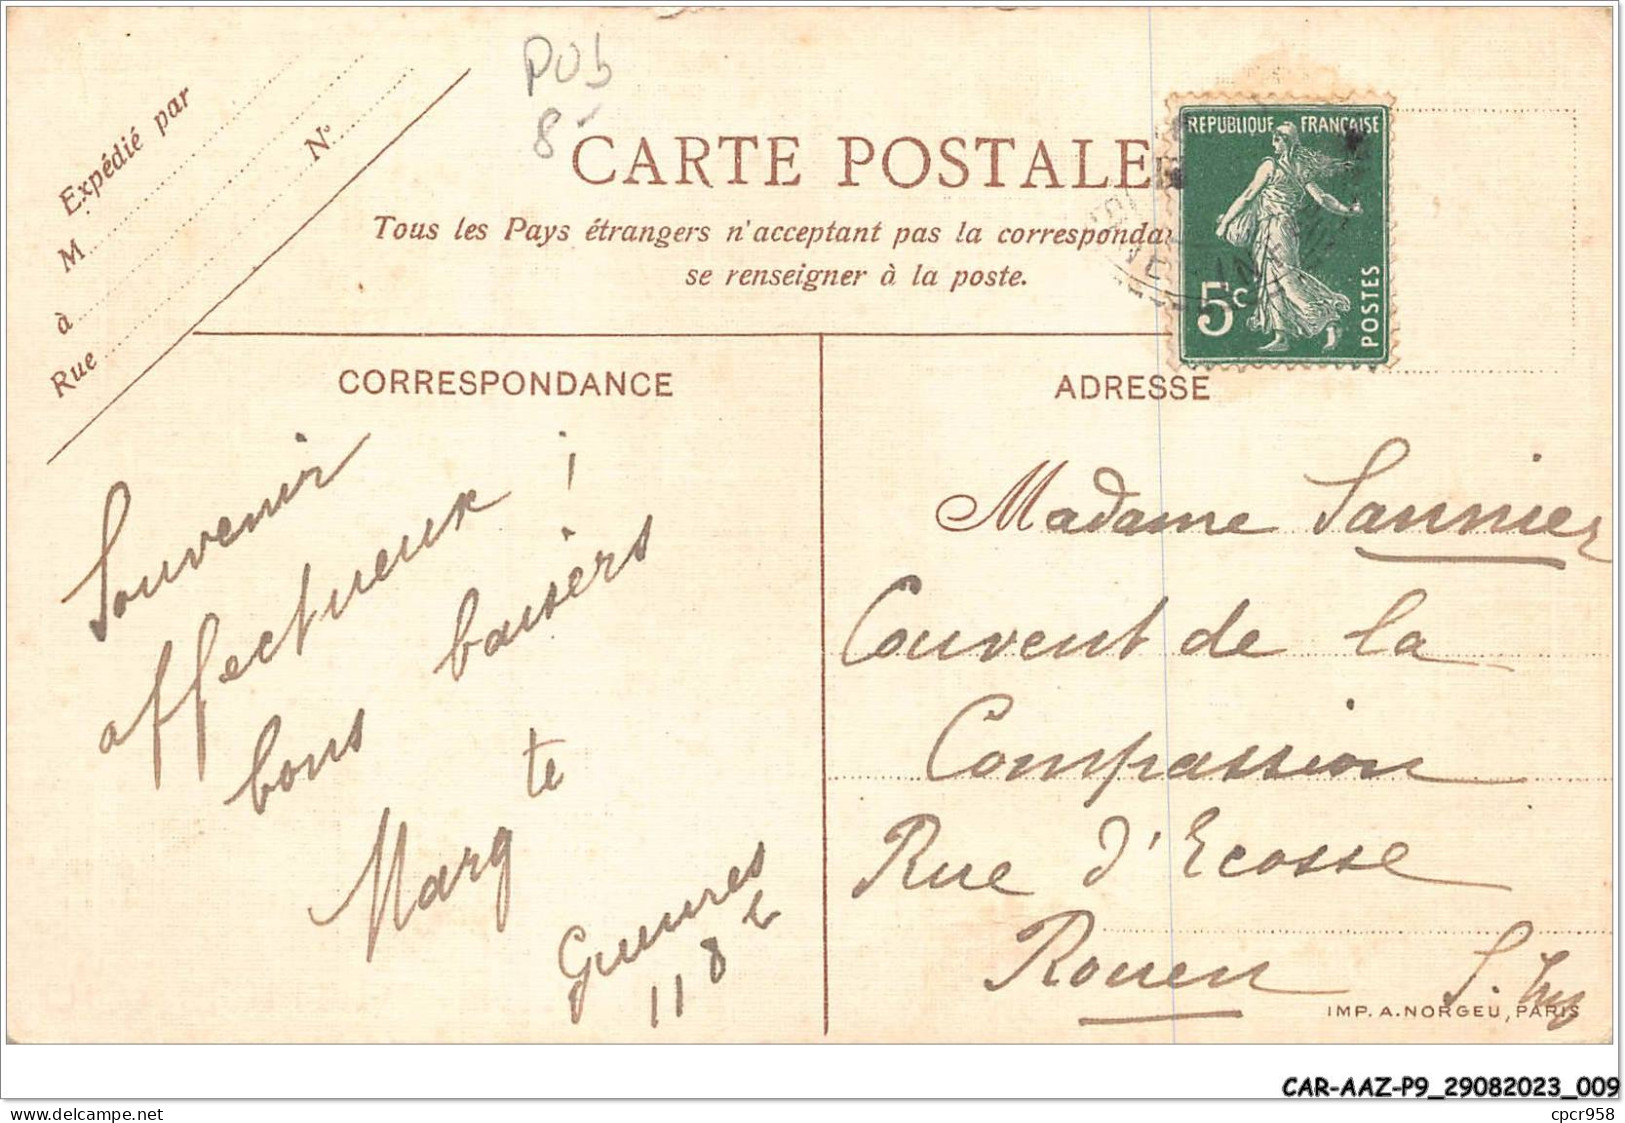 PUb
8-
Expédié par
M
N°
à
Rue
CARTE POSTALE
Tous les Pays étrangers n'acceptant pas la corresponda
se renseigner à la poste.
REPUBLIQUE FRANÇAISE
5c
POSTES
CORRESPONDANCE
Souvenir
affectueux !
bons baisers
Margte
11 8
ADRESSE
Madame Sannier
Couvent de la
Compassion
Rue d'Ecosse
Rouen
IMP. A. NORGEU, PARIS
CAR-AAZ-P9_29082023_009
cpcr958